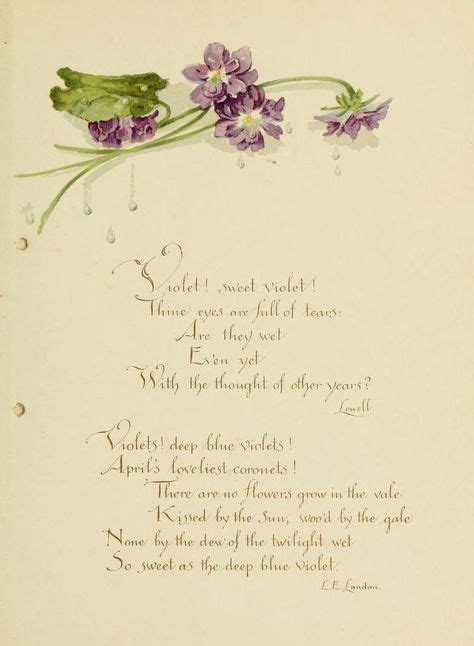 Violet! sweet violet!
Thine eyes are full of tears:
Are they wet
Even yet
With the thought of other years?
Lowell.
Violets! deep blue violets!
April's loveliest coronets!
There are no flowers grow in the vale
Kissed by the Sun, woo'd by the gale
None by the dew of the twilight wet
So sweet as the deep blue violet.
L.E. Landon.